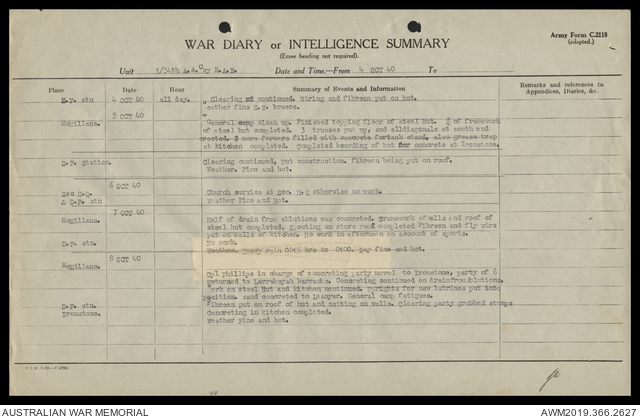 Army Form C.2118
(adapted.)
WAR DIARY or INTELLIGENCE SUMMARY
(Erase heading not required).
Unit 1/54th A.A.Coy R.A.E. Date and Time.—From 4 OCT 40 To
Place Date Hour Summary of Events and Information Remarks and references to Appendices, Diaries, &c.
D.F. stn 4 OCT 40 all day. Clearing continued. Wiring and fibreen put on hut.
eather fine S.E. breeze.
5 OCT 40
McMillans. General camp clean up. Finished topping floor of steel hut. of framework
of steel hut completed. 3 trusses put up, and all diagonals at south end
erected. 2 more formers filled with concrete for tank stand, also grease trap
at kitchen completed. Completed boarding of hut for concrete at Ironstone.
D.F. Station. Clearing continued, hut construction. fibreen being put on roof.
Weather. Fine and hot.
6 OCT 40
Sec H.Q. Church service at Sec. H.Q otherwise no work.
& D.F. stn Weather Fine and Hot.
7 OCT 40
McMillans. Half of drain from ablutions was concreted. Framework of walls and roof of
steel hut completed, spouting on store roof completed Fibreen and fly wire
put on walls of kitchen. No work in afternoon on account of sports.
D.F. stn. No work.
Weather. Heavy rain 0015 hrs to 0400. Day fine and hot.
8 OCT 40
McMillans. Cpl Phillips in charge of concreting party moved to Ironstone, party of 6
returned to Larrakeyah barracks. Concreting continued on drain from ablutions.
Work on steel hut and kitchen continued. Uprights for new latrines put into
position. sand concreted to Leanyer. General camp fatigues.
D.F. stn. Fibreen put on roof of hut and netting on walls. Clearing party grubbed stumps
Ironstone. Concreting in kitchen completed.
Weather fine and hot.
AUSTRALIAN WAR MEMORIAL AWM2019.366.2627